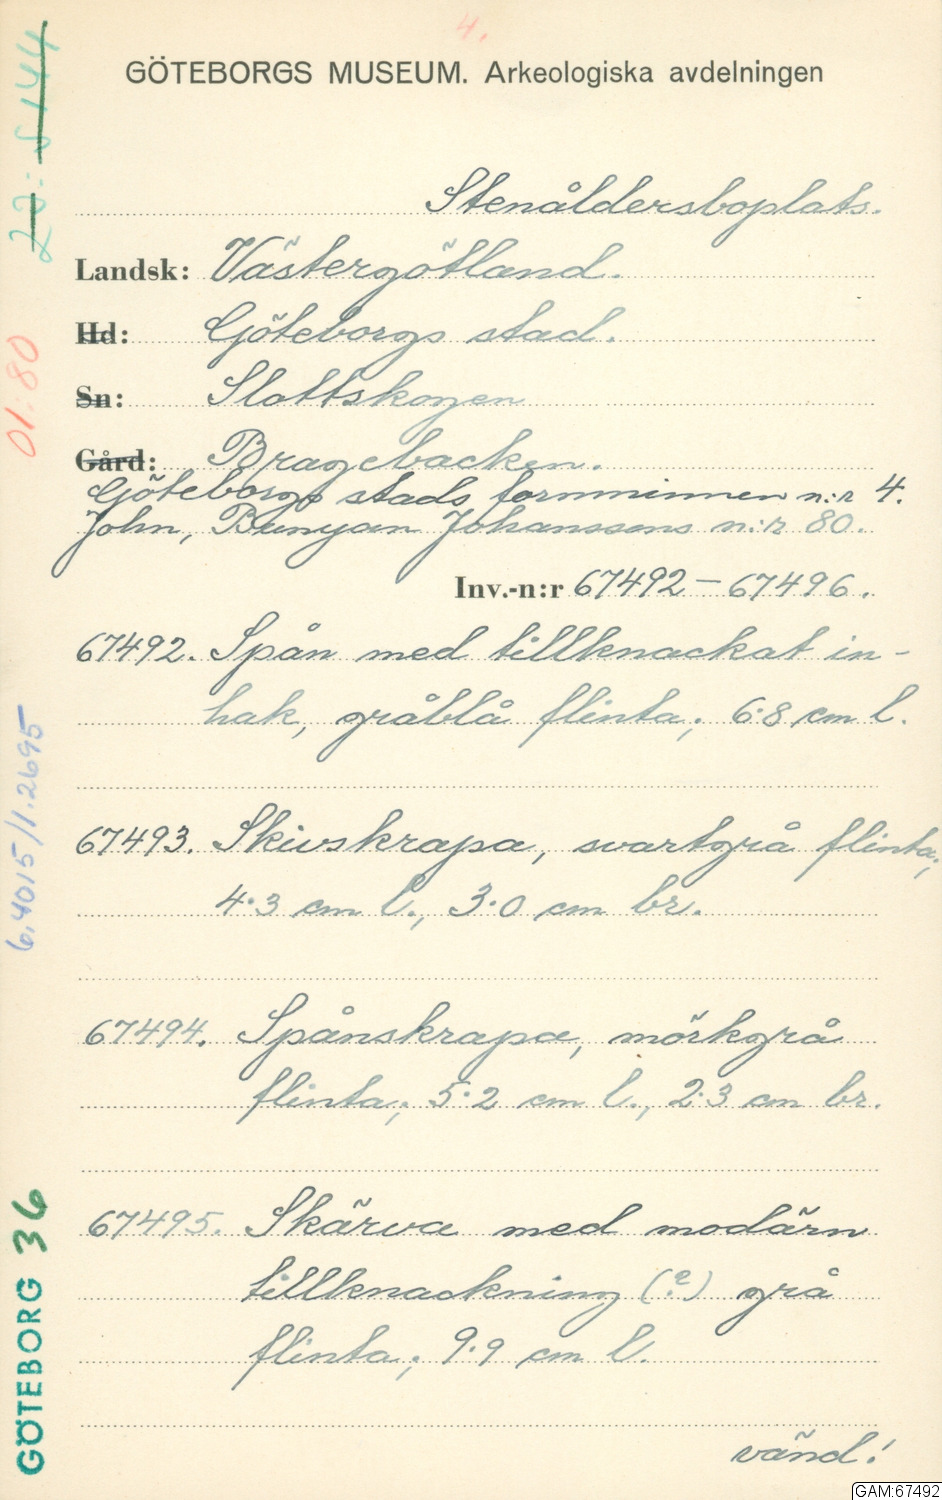 4.
GÖTEBORGS MUSEUM. Arkeologiska avdelningen
Stenåldersboplats.
Landsk: Västergötland.
Hd: Göteborgs stad.
Sn: Slottskogen
Gård: Bragebacken.
Göteborgs stads fornminnen n:r 4.
John, Bunyan Johanssons n:r 80.
Inv.-n:r 67492 – 67496.
67492. Spån med tillknackat in-
hak, gråblå flinta; 6.8 cm l.
67493. Skivskrapa, svartgrå flinta;
4.3 cm l., 3.0 cm br.
67494. Spånskrapa, mörkgrå
flinta; 5.2 cm l., 2.3 cm br.
67495. Skärva med modärn
tillknackning (?) grå
flinta; 9.9 cm l.
vänd!
01:80
6.4015/1.2695
GÖTEBORG 36
GAM:67492